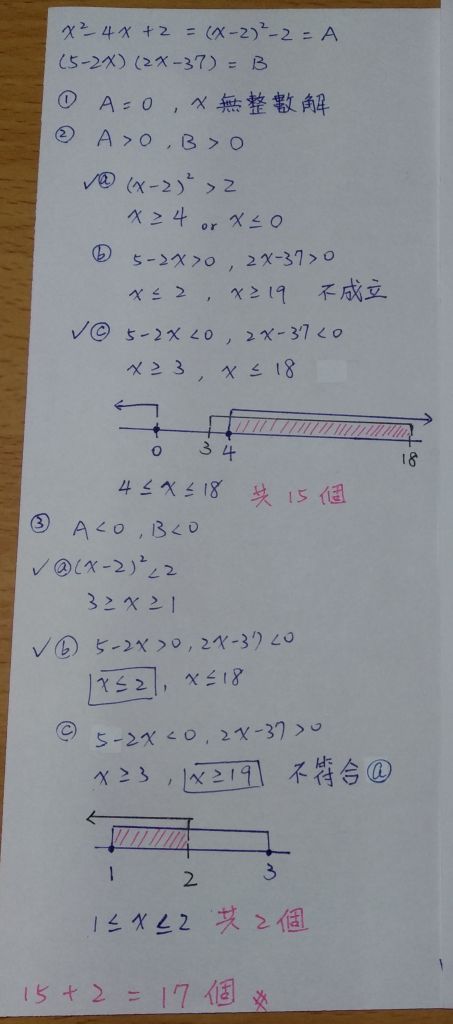 x²-4x+2 = (x-2)²-2 = A
(5-2x)(2x-37) = B
① A=0, x 無整數解
② A>0, B>0
✓ⓐ (x-2)²>2
x≥4 or x≤0
ⓑ 5-2x>0, 2x-37>0
x≤2, x≥19 不成立
✓ⓒ 5-2x<0, 2x-37<0
x≥3, x≤18
0 3 4 18
4≤x≤18 共15個
③ A<0, B<0
✓ⓐ(x-2)²<2
3≥x≥1
✓ⓑ 5-2x>0, 2x-37<0
x≤2, x≤18
ⓒ 5-2x<0, 2x-37>0
x≥3, x≥19 不符合ⓐ
1 2 3
1≤x≤2 共2個
15+2=17個